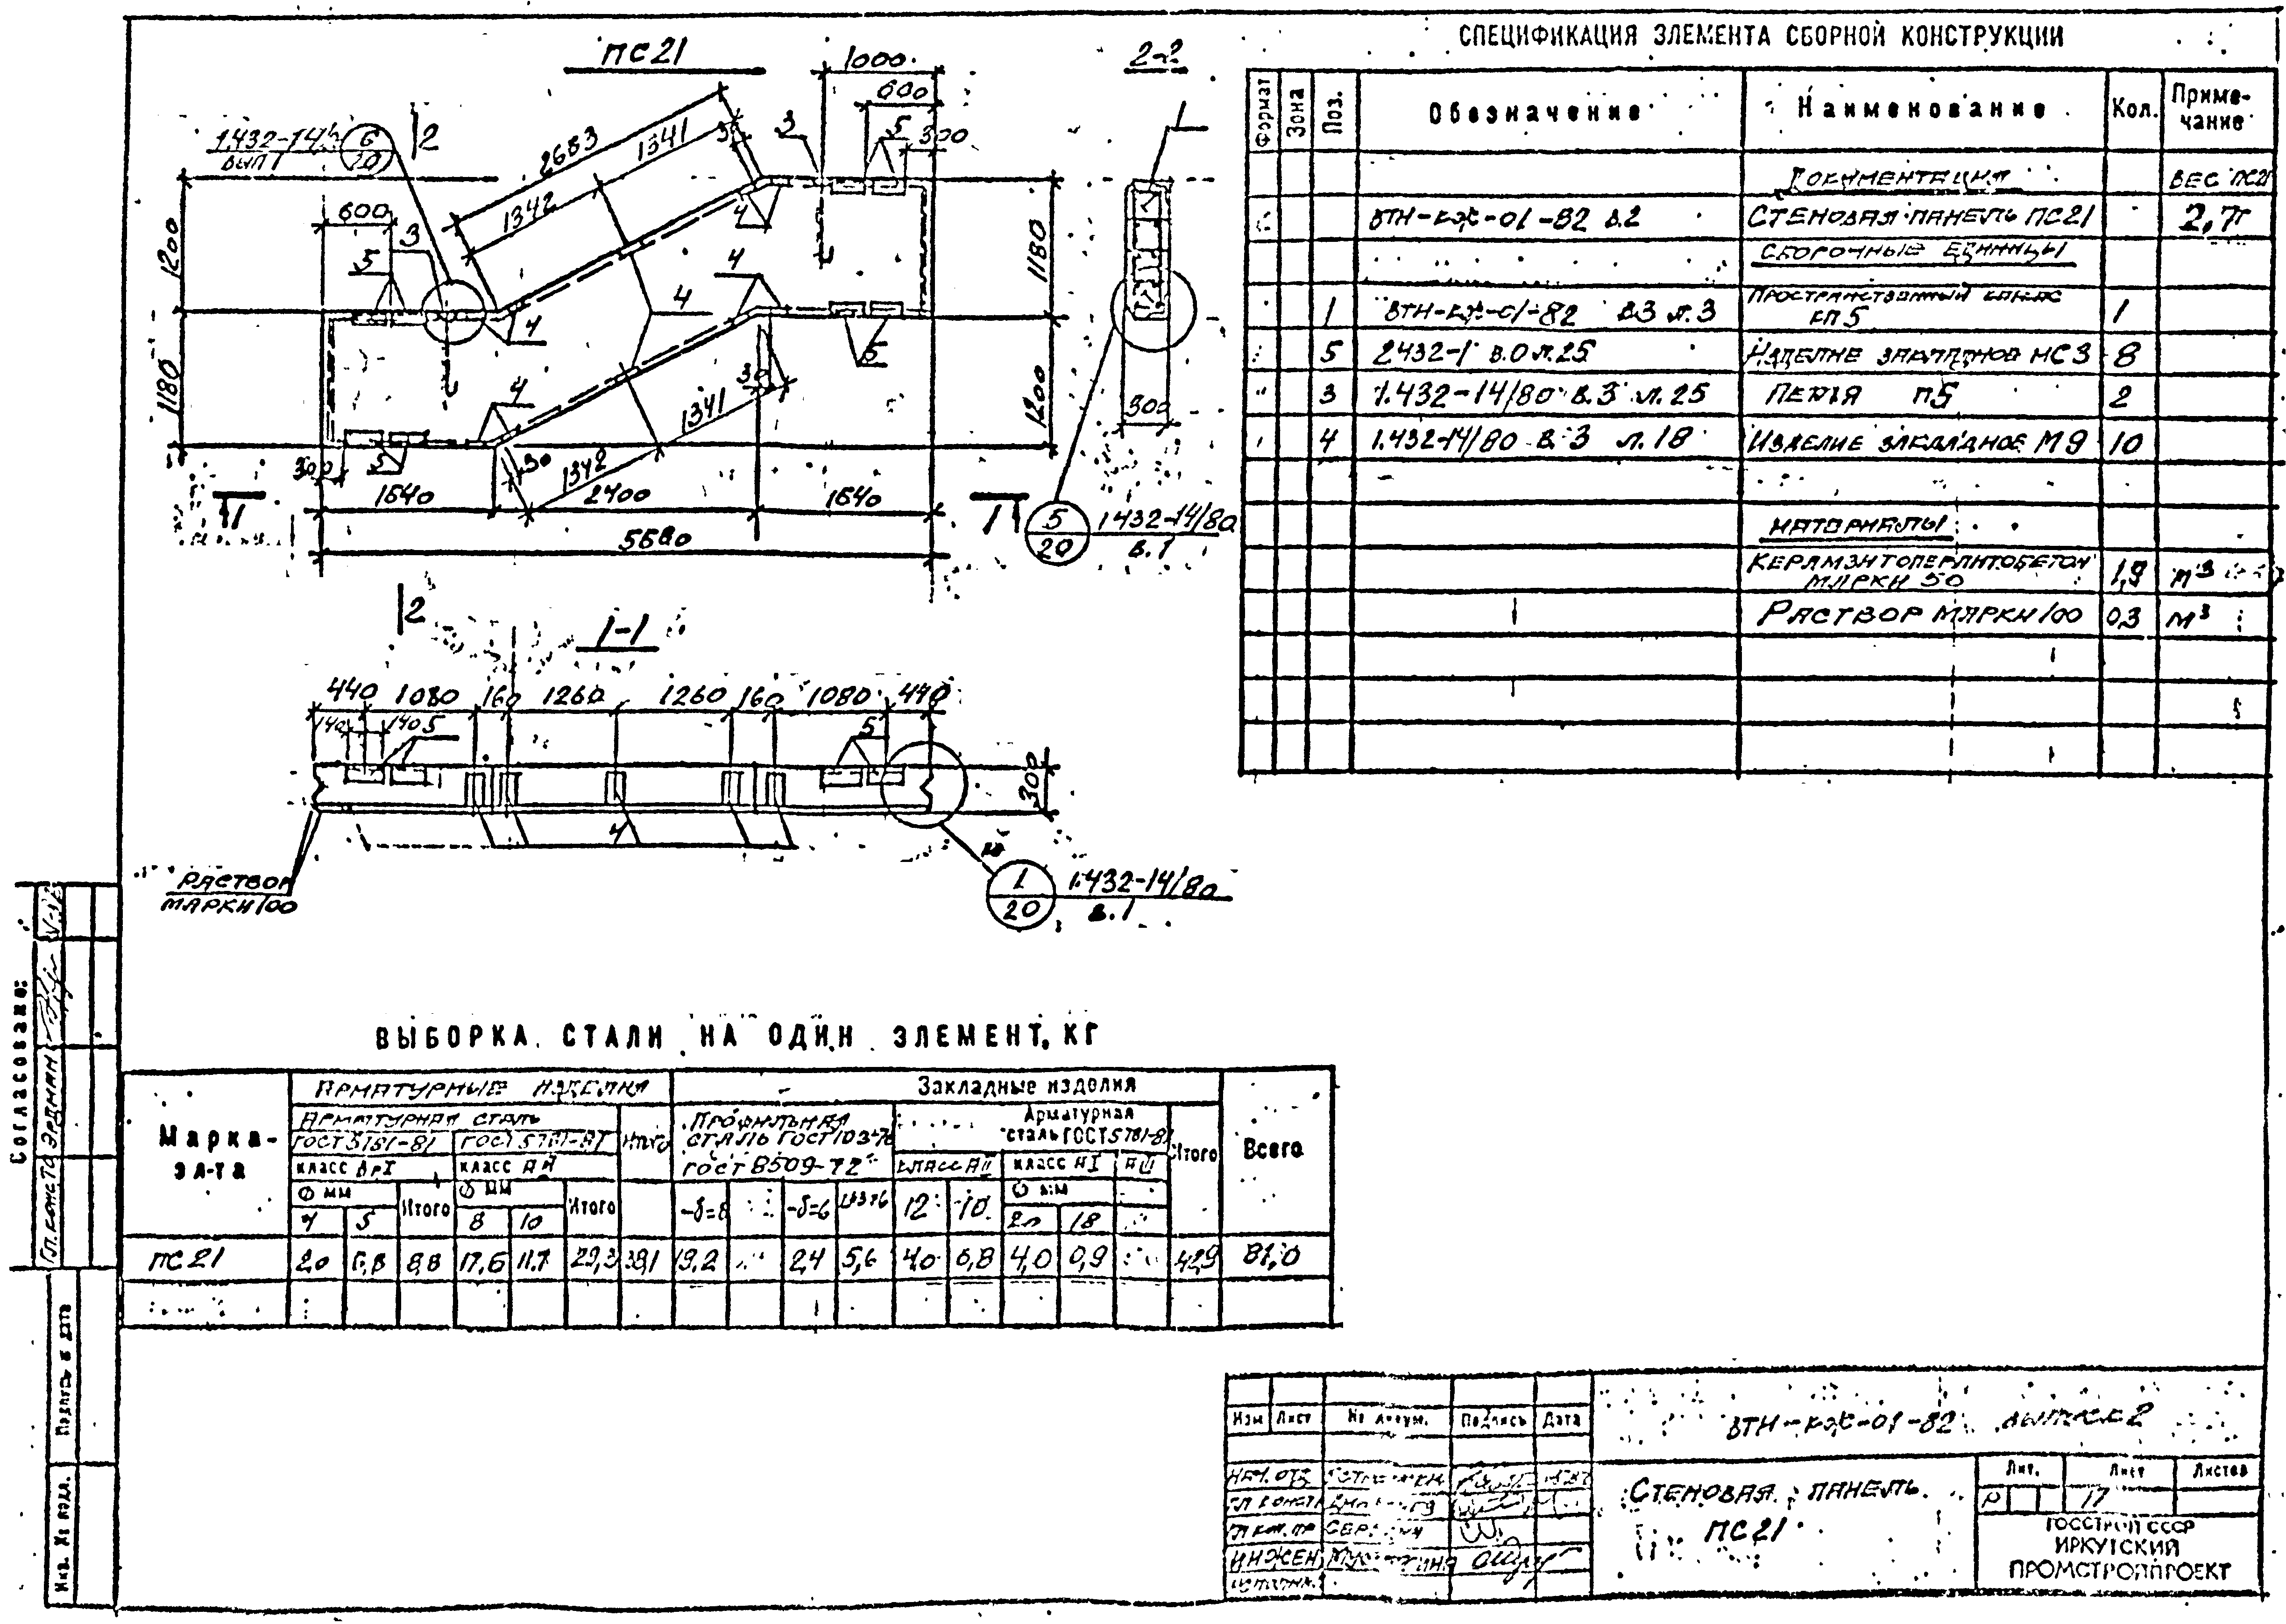 СПЕЦИФИКАЦИЯ ЭЛЕМЕНТА СБОРНОЙ КОНСТРУКЦИИ
Формат Зона Поз. Обозначение Наименование Кол. Приме-
чание
Документация ВЕС ПС21
ВТН-КЖ-01-82 В.2 СТЕНОВАЯ ПАНЕЛЬ ПС21 2,7т
СБОРОЧНЫЕ ЕДИНИЦЫ
1 ВТН-КЖ-01-82 В3 л.3 ПРОСТРАНСТВЕННЫЙ КАРКАС КП5 1
5 2432-1 в.0 л.25 ИЗДЕЛИЕ ЗАКЛАДНОЕ МС3 8
3 1.432-14/80 в.3 л.25 ПЕТЛЯ П5 2
4 1.432-14/80 в.3 л.18 ИЗДЕЛИЕ ЗАКЛАДНОЕ М9 10
МАТЕРИАЛЫ
КЕРАМЗИТОПЕРЛИТОБЕТОН
МАРКИ 50 1,9 м³
РАСТВОР МАРКИ 100 0,3 м³
ПС21
1000
600
300
3
5
2683
1341
1342
1.432-14
ВЫП 1
6
20
2
600
3
5
4
1200
1180
1180
1200
4
4
4
4
5
30
1341
1342
30
300
5
1640 2400 1640
5680
1 1
2
2-2
1
300
5
20
1432-14/80
в.1
1-1
440 1080 160 1260 1260 160 1080 440
140 140 5
5
300
4
РАСТВОР
МАРКИ 100
1
20
1.432-14/80
в.1
ВЫБОРКА СТАЛИ НА ОДИН ЭЛЕМЕНТ, КГ
Марка-
эл-та
АРМАТУРНЫЕ ИЗДЕЛИЯ Закладные изделия
Всего
АРМАТУРНАЯ СТАЛЬ
Итого
ПРОФИЛЬНАЯ
СТАЛЬ ГОСТ 103-76
ГОСТ 8509-72
Арматурная
сталь ГОСТ 5781-82
Итого
класс ВрI класс АII
КЛАСС АIII класс АI АIII
Ф мм Итого Ф мм Итого
Ф мм
5 8 10 -δ=8 -δ=6 12 10 20 18
ПС21 2,0 6,8 8,8 17,6 11,7 29,3 38,1 19,2 2,4 5,6 4,0 6,8 4,0 0,9 42,9 81,0
Согласовано:
Подпись и дата
Инв. № подл.
Изм Лист № докум. Подпись Дата
НАЧ. ОТД
ГЛ КОНСТ
ИНЖЕН
ВТН-КЖ-01-82 выпуск 2
СТЕНОВАЯ ПАНЕЛЬ
ПС21
Лит. Лист Листов
Р 17
ГОССТРОЙ СССР
ИРКУТСКИЙ
ПРОМСТРОЙПРОЕКТ